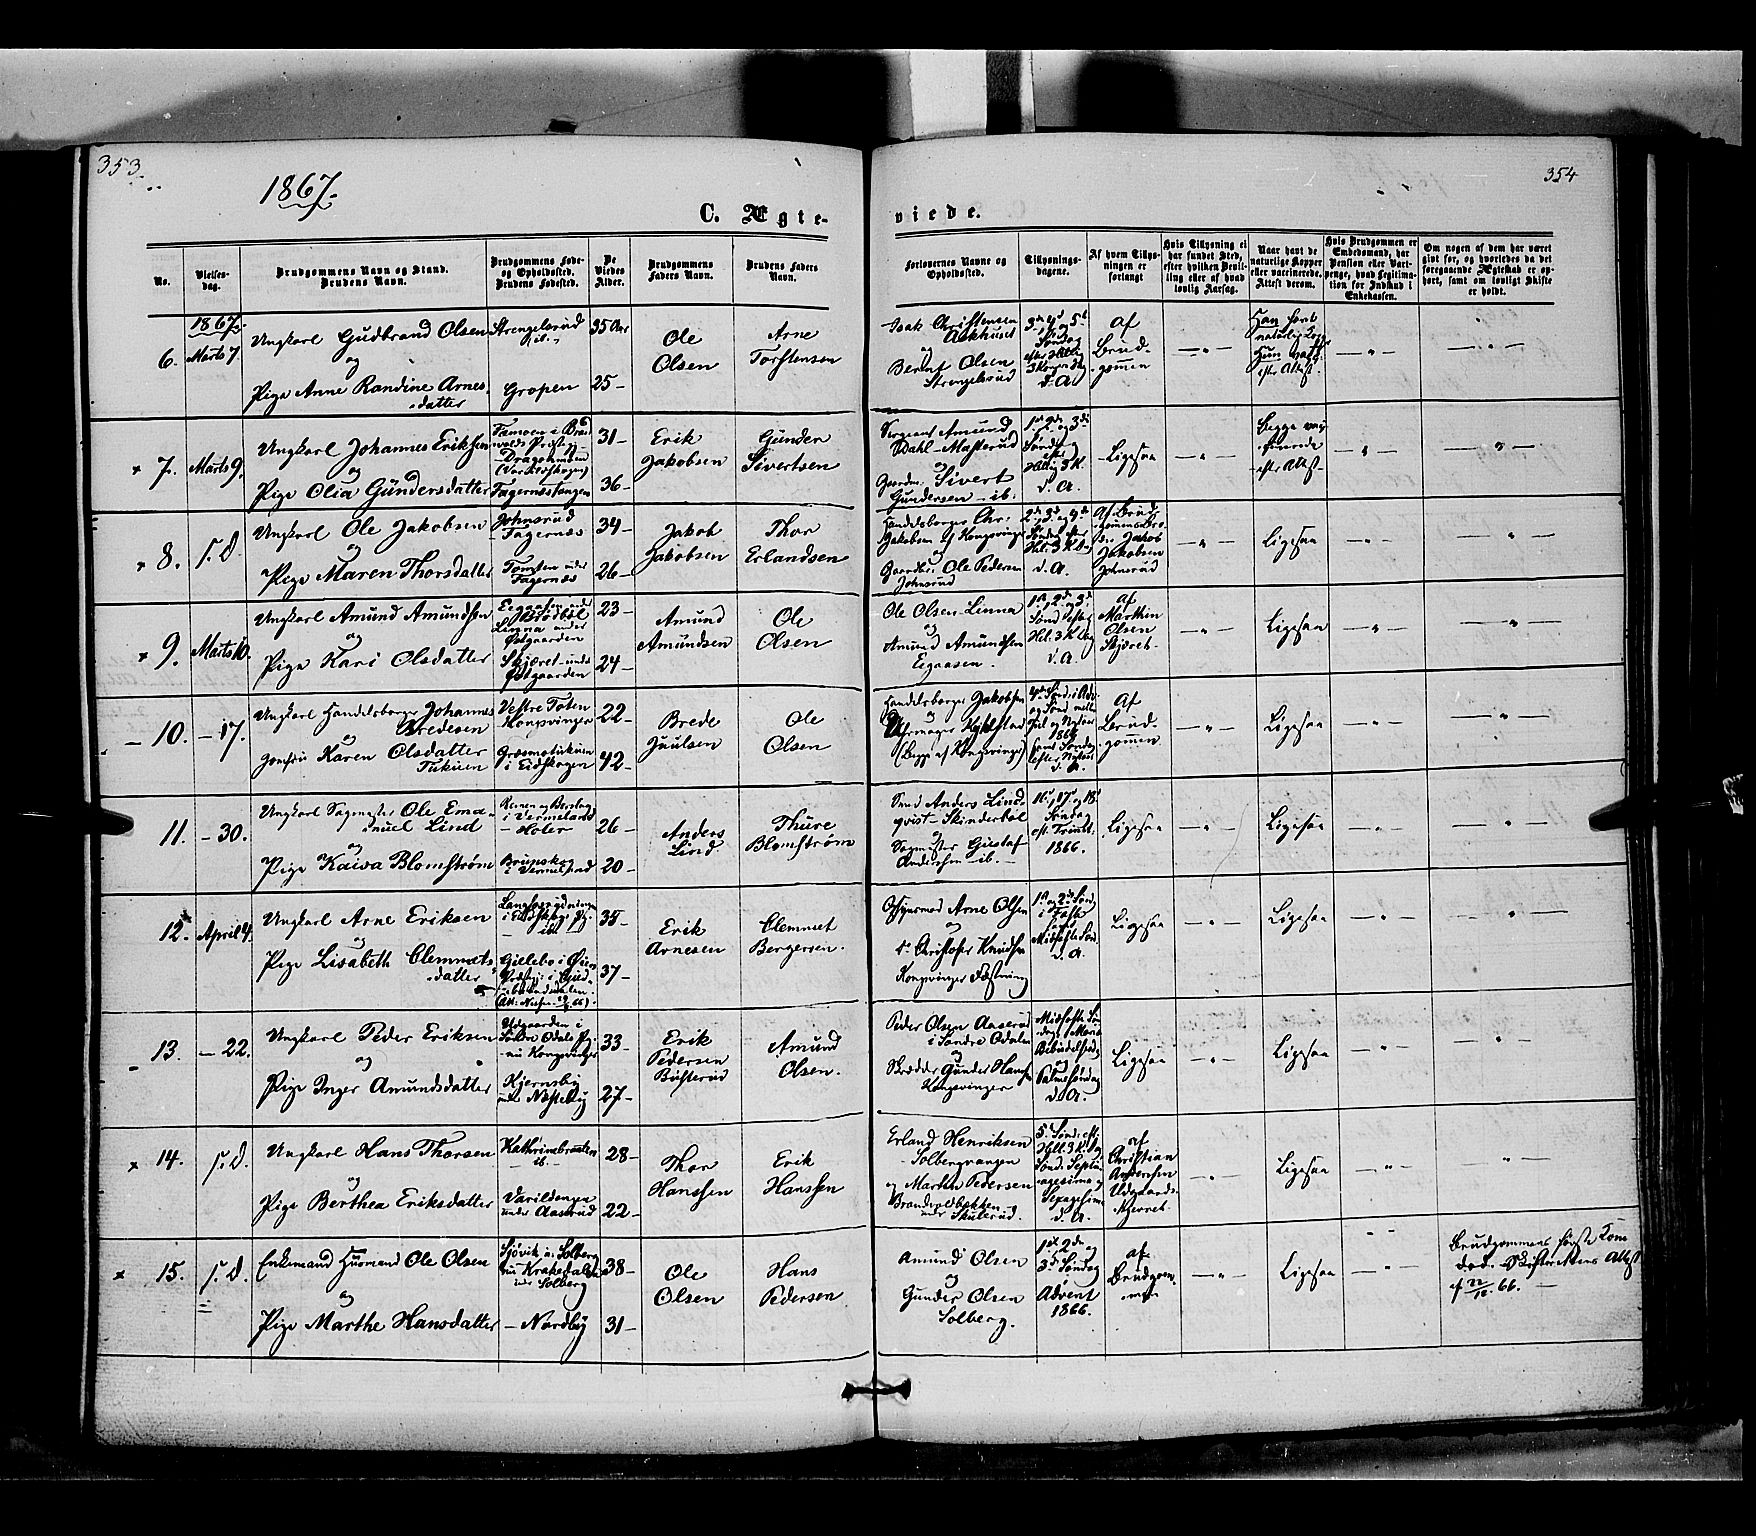 353.
354
1867.
C. Ægte-
viede.
No.
Vielses-
dag.
Brudgommens Navn og Stand.
Brudens Navn.
Brudgommens Føde-
og Opholdssted.
Brudens Fødested.
De
Viedes
Alder.
Brudgommens
Faders Navn.
Brudens Faders
Navn.
Forlovernes Navne og
Opholdssted.
Tillysnings-
dagene.
Af hvem Tillys-
ningen er
forlangt
Hvis Tillysning ei
har fundet Sted,
efter hvilken Bevil-
ling eller af hvad
lovlig Aarsag.
Naar havt de
naturlige Kopper
eller vaccinerede.
Attest derom.
Hvis Brudgommen er
Embedsmand, har
Pension eller Vart-
penge, hvad Legitima-
tion for Indskud i
Enkekassen.
Om nogen af dem har været
gift før, og hvorledes da det
foregaaende Ægteskab er op-
hørt, samt om lovligt Skifte
er holdt.
1867.
6.
Marts 7
Ungkarl Gudbrand Olsen
og
Pige Anne Randine Arnes-
datter
Strengelsrud
ib.
Gropen
35 Aar
25-
Ole
Olsen
Arne
Torstensen
Isak Christensen
og
Bernt Olsen
Strengelsrud
3de, 4de og 5te
Søndag
efter Hellig
3 Kongers Dag
d. A.
Af
Brud-
gommen
Han havt
naturlig. Kop.
Hun vacc.
efter Attest.
7.
Marts 9.
Ungkarl Johannes Eriksen
og
Pige Olia Gundersdatter
Fagernæstangen
31-
36-
Erik
Jakobsen
Gunder
Sivertsen
Sergeant Amund
Dahl - Masterud
og
Gaardm. Sivert
Gundersen - ib.
1ste, 2de og 3die
Søndag
efter
Hellig 3 K.
d. A.
Ligesaa
Begge vac-
cinerede
efter Attest
8.
s. D.
Ungkarl Ole Jakobsen
og
Pige Maren Thorsdatter
Johnsrud
Fagernæs
Tomten under
Fagernæs
34-
26-
Jakob
Jakobsen
Thor
Erlandsen
Handelsborger Chr.
Jakobsen af Kongsvinger
og
Gaardbr. Ole Pedersen
Johnsrud
2de, 3de og 4de
Søndag efter
Hel. 3 K. Dag
d. A.
Af Brud-
gommens Bro-
der Jakob
Jakobsen
Johnsrud
Ligesaa
9.
Marts 10.
Ungkarl Amund Amundsen
og
Pige Kari Olsdatter
Linna under
Østgaarden
Skjæret under
Østgaarden
23-
24-
Amund
Amundsen
Ole
Olsen
Ole Olsen Linna
og
Amund Amundsen
Eegaasen.
1ste, 2de og 3de
Sønd. efter
Hel. 3 K. Dag
d. A.
af
Marthin
Olsen
Skjæret.
Ligesaa
10.
- 17.
Ungkarl Handelsborger Johannes
Bredesen
og
Jomfru Karen Olsdatter
Tukuen
Vestre Toten
Kongsvinger
Græsmotukuen
i Eidskogen
22-
42-
Brede
Juulsen
Ole
Olsen
Handelsborger Jakobsen
og
Uhrmager Kykkelstad
(Begge af Kongsvinger)
4de Sønd. i Adv.
og Sønd. mell.
Jul og Nytaar
1866
samt Søndag
efter Nytaar
d. A.
Af
Brud-
gommen.
Ligesaa
11.
- 30.
Ungkarl Sagmester Ole Ema-
nuel Lind
og
Pige Kaisa Blomstrøm
i Vermeland
- Holer
Brunskog
i Vermeland
26-
20-
Anders
Lind
Thure
Blomstrøm
Smed Anders Lind-
qvist - Skinderbøl
og
Sagmester Gustaf
Andersen - ib. -
16de, 17de og 18de
Søndag
eft. Trinit.
1866.
Ligesaa
Ligesaa
12.
April 4.
Ungkarl Arne Eriksen
og
Pige Lisabeth Clemmets-
datter
i Eidskog Pg.
ib.
Gillebo i Øier
Præstegj. i Gud-
brandsdalen.
35-
37-
Erik
Arnesen
Clemmet
Bergersen.
Opsynsmd. Arne Olsen
og
do. Christofer Knudsen
Kongsvinger Fæstning
1ste og 2de Sønd.
i Faste
samt
Midfaste Sønd.
d. A.
Ligesaa
Ligesaa
13.
- 22.
Ungkarl Peder Eriksen
og
Pige Inger Amundsdatter
Søndre Odals Pg.
nu Kongsvinger
Kjernsby
under Næsteby
33-
27-
Erik
Pedersen
Busterud
Amund
Olsen.
Peder Olsen Aaserud
i Søndre Odalen
og
Skrædder Gunder Hansen
Kongsvinger
Midfaste Søn-
dag, Mariæ
Bebudelsesdag
og
Palmesøndag
d. A.
Ligesaa
Ligesaa
14.
s. D.
Ungkarl Hans Thorsen
og
Pige Berthea Eriksdatter
Kathrinebraaten
ib.
Varildengen
under Aaserud
28-
22-
Thor
Hanssen
Erik
Hanssen
Erland Henriksen
Solbergvangen
og Martin Pedersen
Brandvoldbakken
under Skulerud.
5te Sønd. eft.
Hell. 3 K. Dag
Sønd. Septu-
agesima og
Sexagesima
d. A.
af
Christian
Andersen
Udgaards-
kjernet.
Ligesaa
15.
s. D.
Enkemand Husmand Ole Olsen
og
Pige Marthe Hansdatter
Sjövik u. Solberg
nu Krakedalen
under Solberg
- Nordby
38-
31-
Ole
Olsen
Hans
Pedersen
Amund Olsen
og
Gunder Olsen
Solberg.
1ste, 2den og
3de Søndag
i
Advent
1866.
af
Brudgom-
men
Ligesaa
Brudgommens første Kone
død. Skifterettens Attest
af 22/12 66.